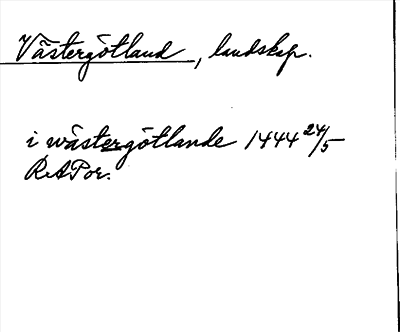 Västergötland, landskap.
i wästergötlande 1444 24/5
RAPor.